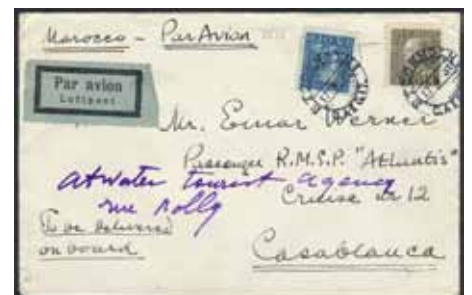 Marocco - Par Avion
Par avion
Luftpost
Mr. Einar Werner
Passenger R.M.S.P. "Atlantis"
Atwater tourist agency
Cruise nr 12
rue Nolly
To be delivered
on board
Casablanca